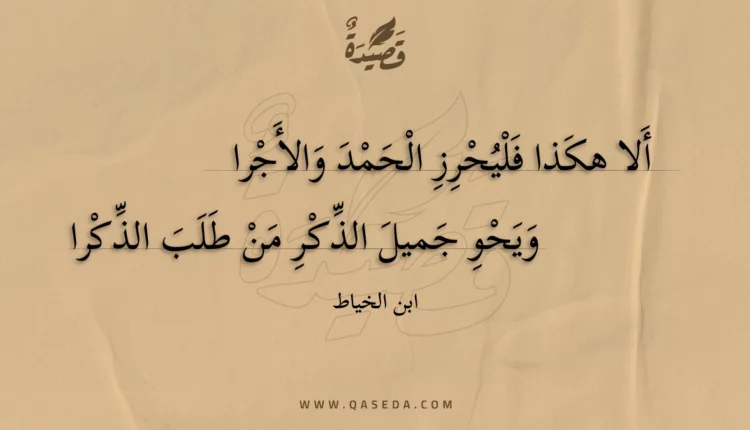 قَصِيْدَةٌ
أَلا هكَذا فَلْيُحْرِزِ الْحَمْدَ وَالأَجْرا
وَيَحْوِ جَميلَ الذِّكْرِ مَنْ طَلَبَ الذِّكْرا
ابن الخياط
WWW.QASEDA.COM